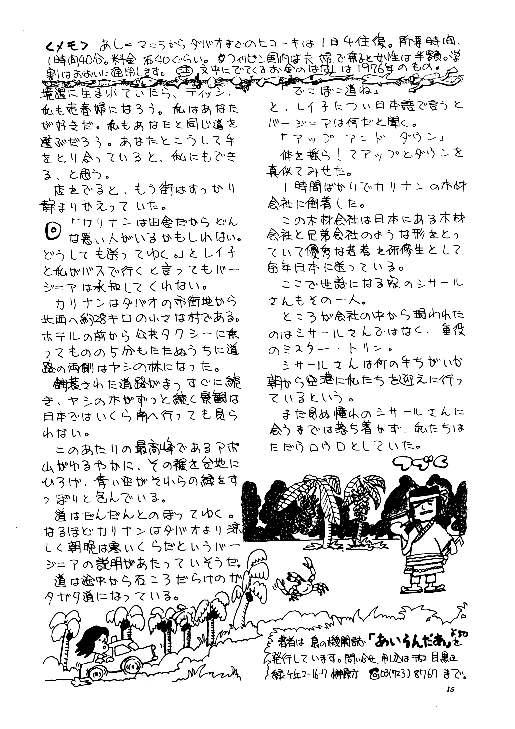 〈メモ〉 あしーマニラからダバオまでのヒコーキは1日4往復。所要時間、
1時間40分。料金 $40ぐらい。タフィリピン国内は夫婦で乗ると女性は半額。学
割はおおいに通用します。 文中にでてくるお金のはなしは1976年のもの。
境遇に生まれていたら、デイゾン、
私も売春婦になろう。私はあなた
が好きだ。私もあなたと同じ道を
選ぶだろう。あなたとこうして手
をとり合っていると、私にもでき
る、と思う。
店をでると、もう街はすっかり
静まりかえっていた。
◎ 「カリナンは田舎だからどん
な悪い人がいるかもしれない。
どうしても送ってゆく。」とレイ子
と私がバスで行くと言ってもバー
ジニアは承知してくれない。
カリナンはダバオの市街地から
北西へ約28キロの小さな村である。
ホテルの前から公共タクシーに乗
ってものの5分もたたぬうちに道
路の両側はヤシの林になった。
舗装された道路がまっすぐに続
き、ヤシの木がずっと続く景観は
日本ではいくら南へ行っても見ら
れない。
このあたりの最高峰であるアポ
山がゆるやかに、その裾を台地に
ひろげ、青い空がそれらの緑をす
っぽりと包んでいる。
道はだんだんとのぼってゆく。
なるほどカリナンはダバオより涼
しく朝晩は寒いくらだというバー
ジニアの説明があたっていそうだ。
道は途中から石ころだらけのガ
タガタ道になっている。
でこぼこ道ね。
と、レイ子についに日本語で言うと
バージニアは何だと聞く。
「アップ アンド ダウン」
体を揺らしてアップとダウンを
真似てみせた。
1時間ばかりでカリナンの木材
会社に到着した。
この木材会社は日本にある木材
会社と兄弟会社のような形をとっ
ていて優秀な若者を研修生として
毎年日本に送っている。
ここで世話になる家のシサール
さんもその一人。
ところが会社の中から現われた
のはシサールさんではなく、重役
のミスター・トリン。
シサールさんは何の手ちがいか
朝から空港に私たちを迎えに行っ
ているという。
まだ見ぬ憧れのシサールさんに
会うまでは落ち着かず、私たちは
ただウロウロとしていた。
つづく
著者は 島の機関誌「あいうんだぁ」を
発行しています。問い合せ、申し込みは 目黒区
緑ヶ丘2-16-7 榊原方 ☎03(723)8767まで。
15